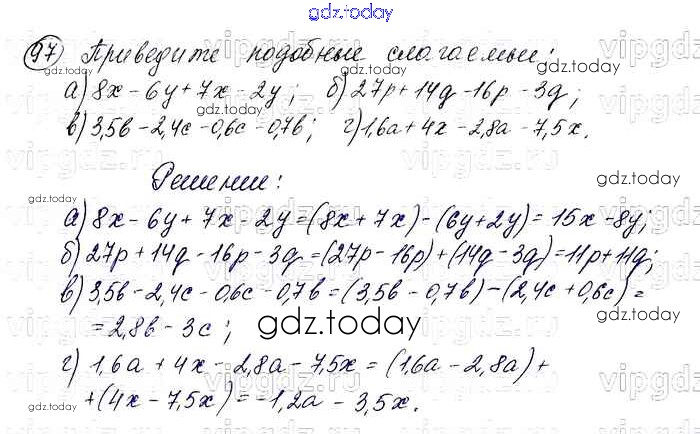 gdz.today
97 Приведите подобные слагаемые:
а) 8x - 6y + 7x - 2y; б) 27p + 14q - 16p - 3q;
в) 3,5b - 2,4c - 0,6c - 0,7b; г) 1,6a + 4x - 2,8a - 7,5x.
Решение:
а) 8x - 6y + 7x - 2y = (8x + 7x) - (6y + 2y) = 15x - 8y;
б) 27p + 14q - 16p - 3q = (27p - 16p) + (14q - 3q) = 11p + 11q;
в) 3,5b - 2,4c - 0,6c - 0,7b = (3,5b - 0,7b) - (2,4c + 0,6c) =
= 2,8b - 3c;
gdz.today
г) 1,6a + 4x - 2,8a - 7,5x = (1,6a - 2,8a) +
+ (4x - 7,5x) = -1,2a - 3,5x.